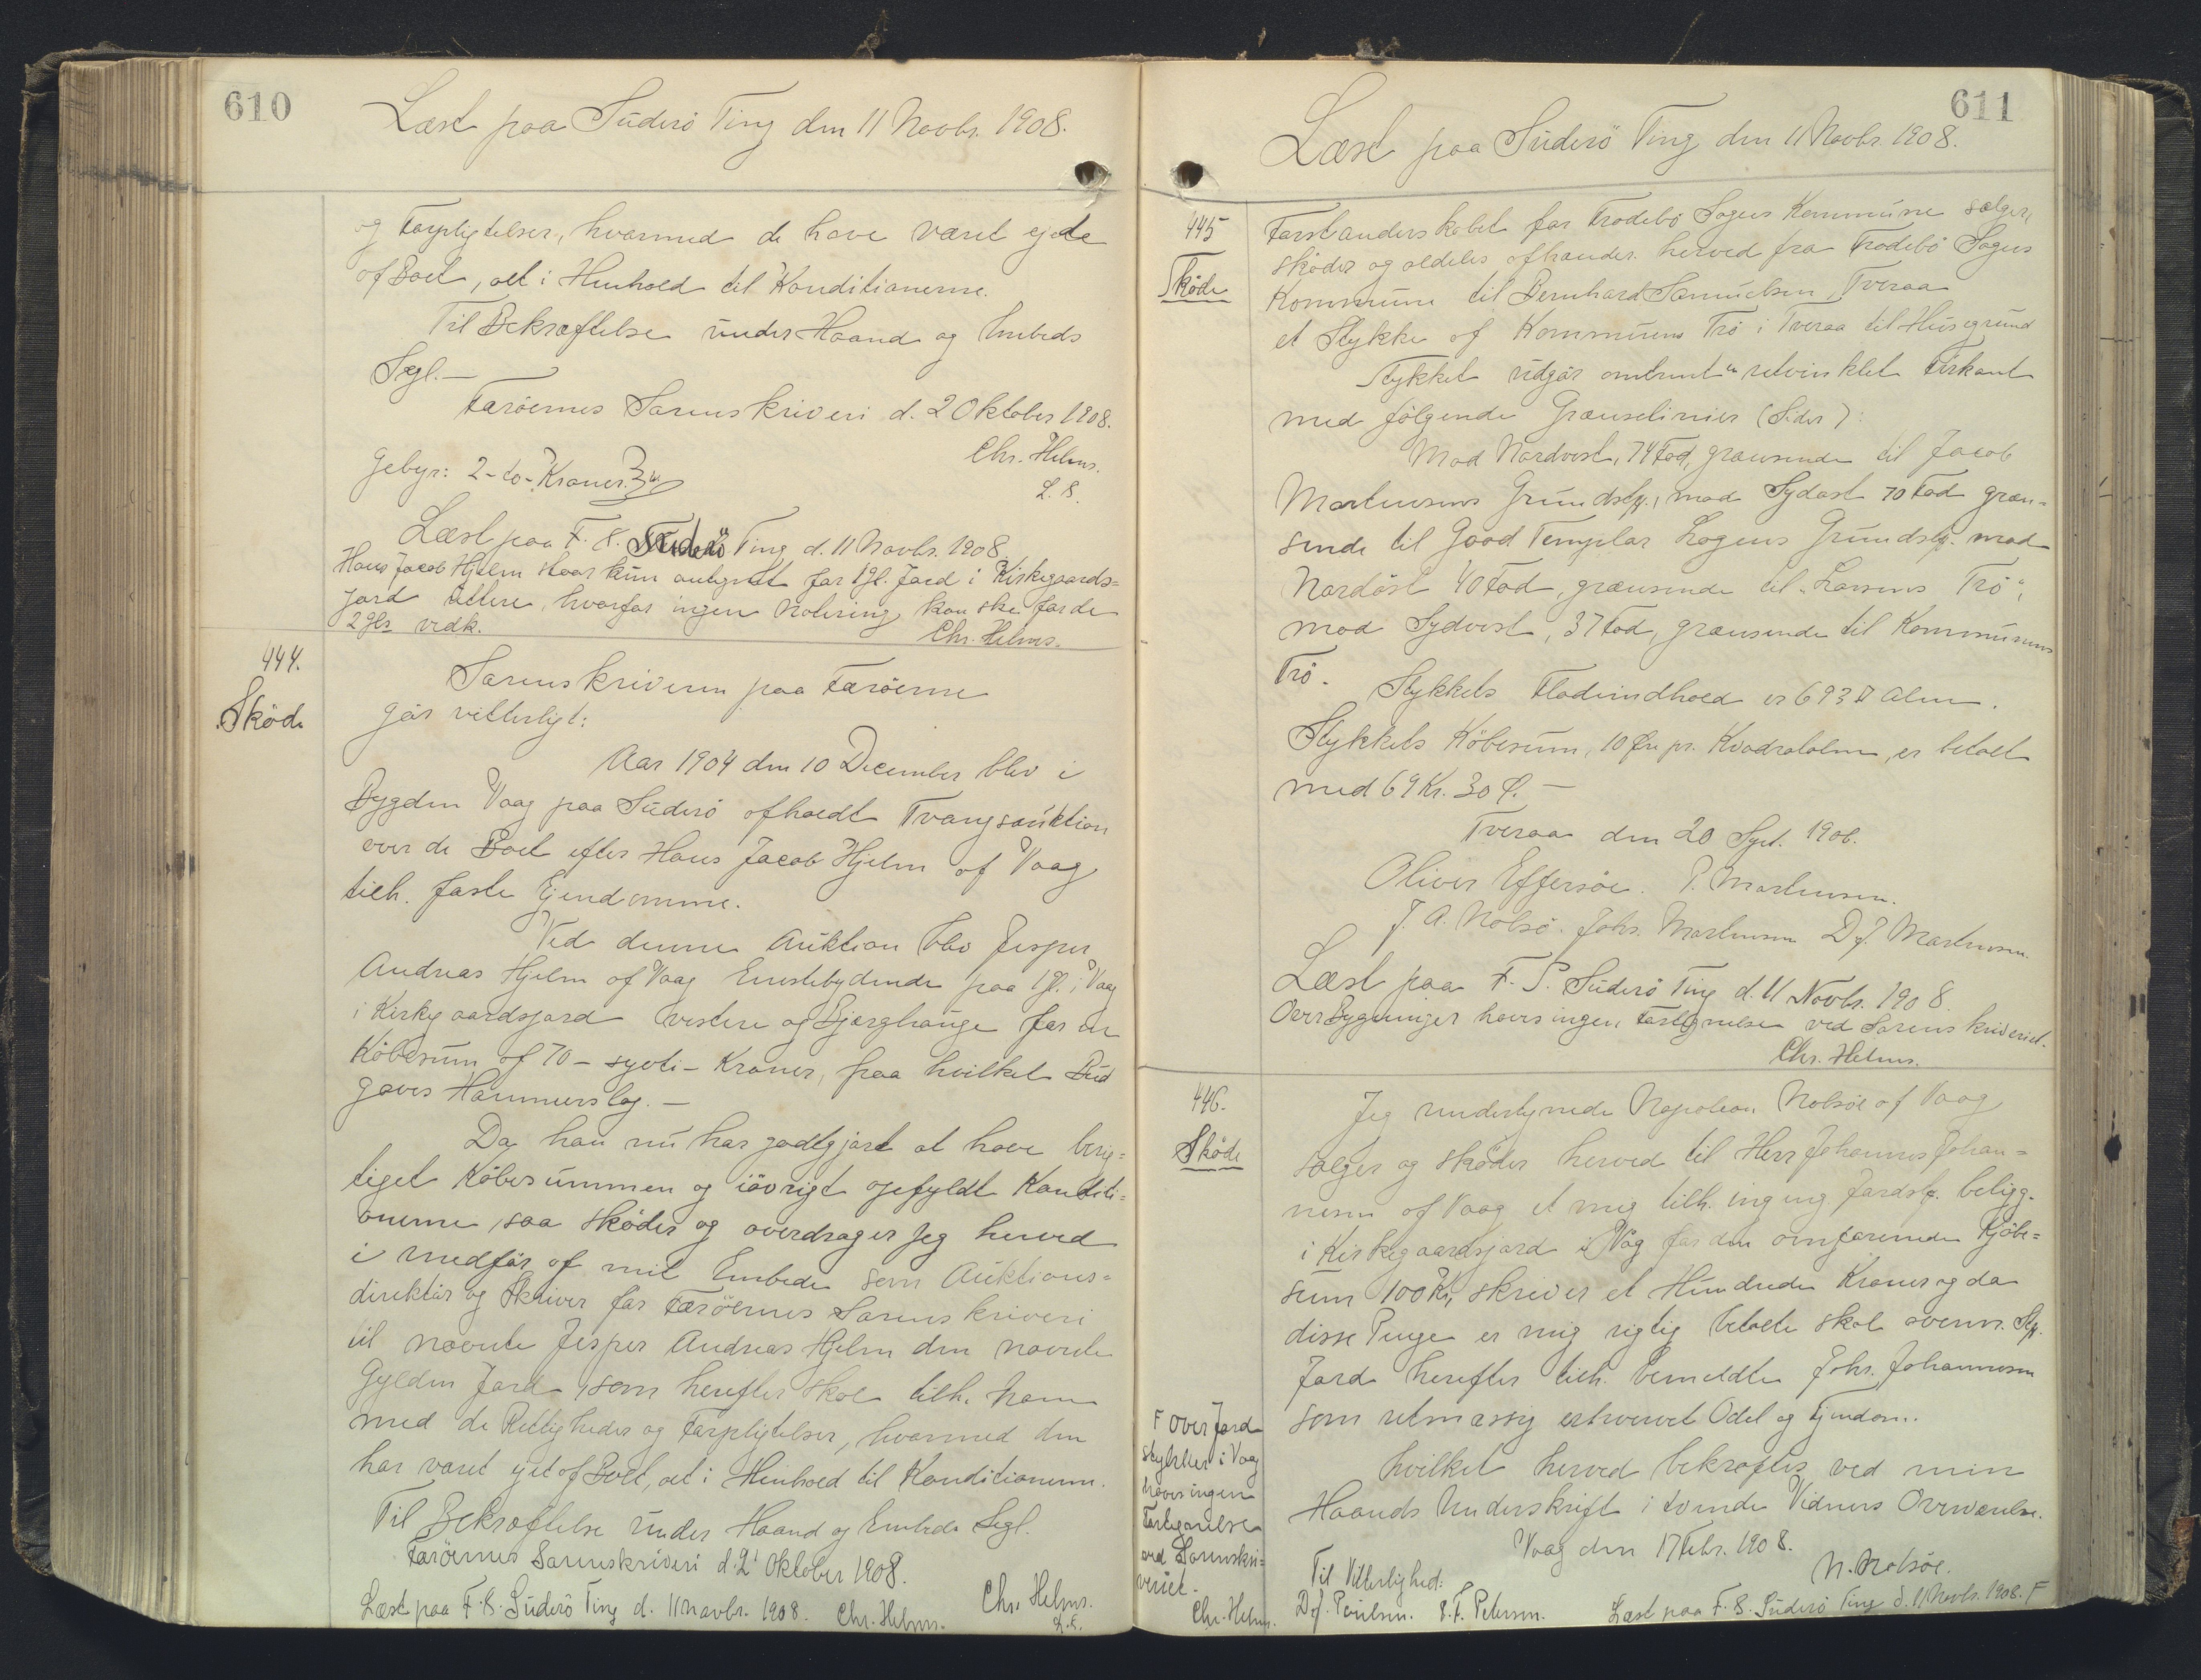 610
Læst paa Suderö Ting den 11 Novbr. 1908.
og Forpligtelser, hvormed de have været ejede
af Boet, alt i Henhold til Konditionerne.
Til Bekræftelse under Haand og Embeds
Segl.—
Færöernes Sorenskriveri d. 2 Oktober 1908.
Chr. Helms.
L. S.
Gebyr: 2 - to - Kroner.
Læst paa F. S. Suderö Ting d. 11 Novbr. 1908.
Hans Jacob Hjelm staar kun antegnet for 1 Gl. Jord i Kirkegaards=
jord , hvorfor ingen Notering kan ske for de
2 Gls vedk.
Chr. Helms.
444.
Sköde
Sorenskriveren paa Færöerne
gör vitterligt:
Aar 1904 den 10 December blev i
Bygden Vaag paa Suderö afholdt Tvangsauktion
over de Boet efter Hans Jacob Hjelm af Vaag
tilh. faste Ejendomme.
Ved denne Auktion blev Jesper
Andreas Hjelm af Vaag Enestebydende paa 1 Gl. i Vaag
i Kirkegaardsjord vestere og Bjerghauge for en
Köbesum af 70 - syvti - Kroner, paa hvilket Bud
gaves Hammerslag.—
Da han nu har godtgjort at have berig=
tiget Köbesummen og iövrigt opfyldt Konditi=
onerne, saa sköder og overdrager jeg herved
i Medför af mit Embede som Auktions=
direktör og Skriver for Færöernes Sorenskriveri
til nævnte Jesper Andreas Hjelm den nævnte
Gylden Jord, som herefter skal tilh. ham
med de Rettigheder og Forpligtelser, hvormed den
har været ejet af Boet, alt i Henhold til Konditionerne.
Til Bekræftelse under Haand og Embeds Segl.
Færöernes Sorenskriveri d. 2 Oktober 1908.
Chr. Helms.
L. S.
Læst paa F. S. Suderö Ting d. 11 Novbr. 1908. Chr. Helms.
611
Læst paa Suderö Ting den 11 Novbr. 1908.
445
Sköde
Forstanderskabet for Frodebö Sogns Kommune sælger,
sköder og aldeles afhænder herved fra Frodebö Sogns
Kommune til Bernhard Samuelsen, Tveraa
et Stykke af Kommunens Trö i Tveraa til Husegrund
Stykket udgör omtrent en retvinklet Firkant
med fölgende Grænselinier (Sider):
Mod Nordvest, 74 Fod, grænsende til Jacob
Mortensens Grundstk., mod Sydost 70 Fod græn=
sende til Good Templar Logens Grundstk. mod
Nordöst 40 Fod, grænsende til "Larsens Trö",
mod Sydvest, 37 Fod, grænsende til Kommunens
Trö.
Stykkets Fladeindhold er 693 □ Alen.
Stykkets Köbesum, 10 Öre pr. Kvadratalen, er betalt
med 69 Kr. 30 Ö.—
Tveraa den 20 Sept. 1906.
Oliver Effersöe. P. Mortensen.
J. A. Nolsö. Johs. Mortensen D. J. Mortensen.
Læst paa F. S. Suderö Ting d. 11 Novbr. 1908
Over Bygninger haves ingen Fortegnelse ved Sorenskriveriet.
Chr. Helms.
446.
Sköde
Jeg undertegnede Napoleon Nolsöe af Vaag
sælger og sköder herved til Herr Johannes Johan=
nesen af Vaag et mig tilh. Jordstk. beligg.
i Kirkegaardsjord i Våg for den omforenede Kjöbe=
sum 100 Kr, skriver et Hundrede Kroner og da
disse Penge er mig rigtig betalte skal ovenn. Stk.
Jord herefter tilh. bemeldte Johs. Johannesen
som retmæssig erhvervet Odel og Ejendom.
Hvilket herved bekræftes ved min
Haands Underskrift i tvende Vidners Overværelse.
Vaag den 17 Febr. 1908.
N. Nolsöe.
Til Vitterlighed:
D. J. Poulsen. P. F. Petersen.
Læst paa F. S. Suderö Ting d. 11 Novbr. 1908. F
F Over Jord
stykker i Vaag
haves ingen
Fortegnelse
ved Sorenskri=
veriet.
Chr. Helms.